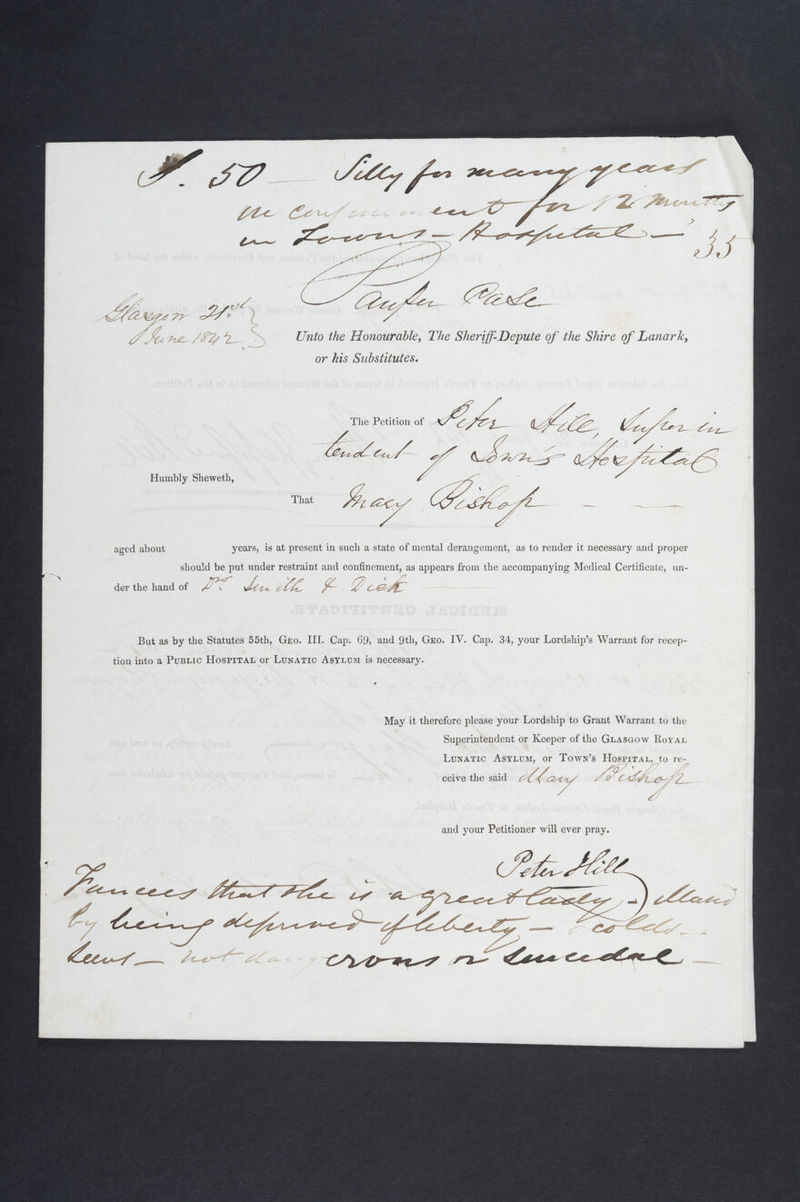 S. 50 — Silly for many years
in confinement for 12 months
in Towns Hospital —
35
Pauper Case
Glasgow 21st
June 1842
Unto the Honourable, The Sheriff-Depute of the Shire of Lanark,
or his Substitutes.
The Petition of Peter Hill, Superin
tendent of Town's Hospital
Humbly Sheweth,
That Mary Bishop
aged about years, is at present in such a state of mental derangement, as to render it necessary and proper
should be put under restraint and confinement, as appears from the accompanying Medical Certificate, un-
der the hand of Drs. Smith & Dick
But as by the Statutes 55th, Geo. III. Cap. 69, and 9th, Geo. IV. Cap. 34, your Lordship's Warrant for recep-
tion into a Public Hospital or Lunatic Asylum is necessary.
May it therefore please your Lordship to Grant Warrant to the
Superintendent or Keeper of the Glasgow Royal
Lunatic Asylum, or Town's Hospital, to re-
ceive the said Mary Bishop
and your Petitioner will ever pray.
Peter Hill
Fancies that she is a great lady -
by being deprived of liberty —
not dangerous or suicidal —